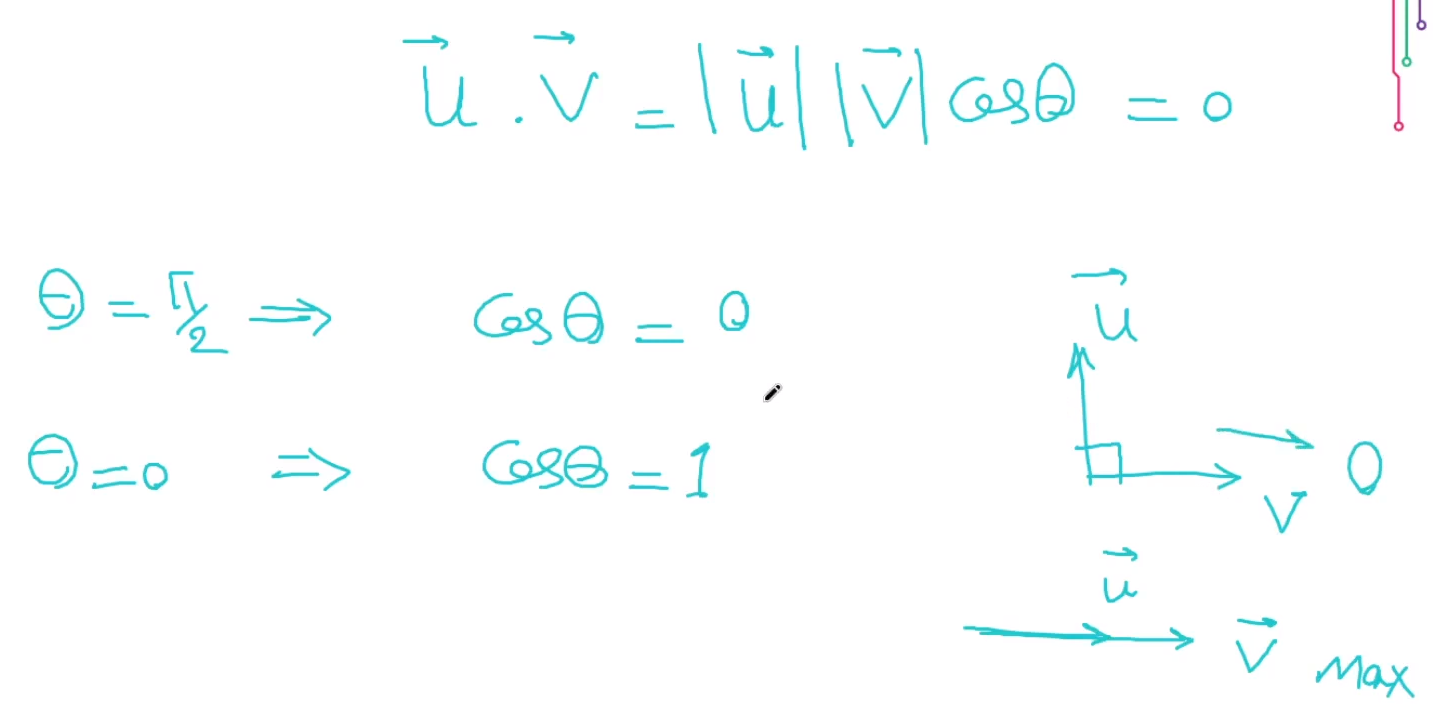 u⃗ . v⃗ = |u⃗| |v⃗| cosθ = 0
θ = π/2 ⇒ cosθ = 0
θ = 0 ⇒ cosθ = 1
u⃗
v⃗ 0
u⃗
v⃗ Max